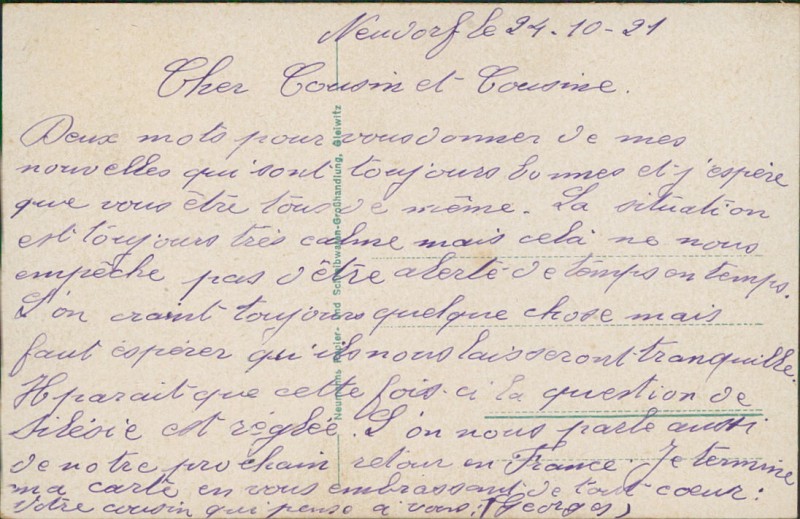 Neudorf le 24-10-21
Cher Cousin et Cousine.
Deux mots pour vous donner de mes
nouvelles qui sont toujours bonnes et j'espère
que vous être tous de même. La situation
est toujours très calme mais celà ne nous
empêche pas d'être alerté de temps en temps.
L'on craint toujours quelque chose mais
faut espérer qu'ils nous laisseront tranquille.
Il parait que cette fois-ci la question de
Silésie est réglée. L'on nous parle aussi
de notre prochain retour en France. Je termine
ma carte en vous embrassant de tout cœur.
Votre cousin qui pense à vous. (Georges)
Neumanns Papier- und Schreibwaren-Großhandlung, Gleiwitz